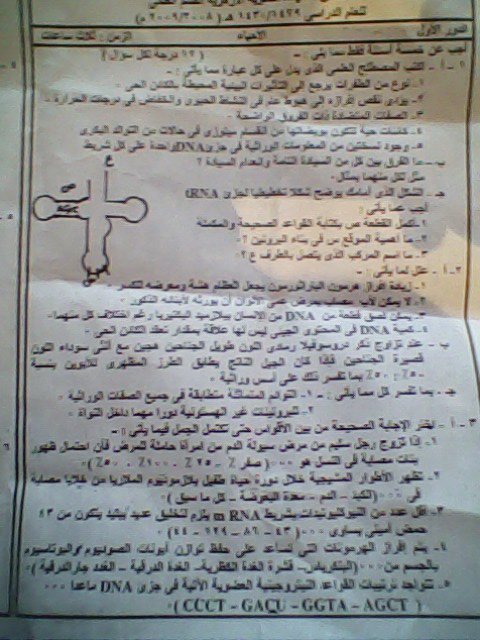 للعام الدراسى ١٤٢٩/ ١٤٣٠ هـ ( ٢٠٠٨ / ٢٠٠٩ م )
الدور الأول الأحياء الزمن : ثلاث ساعات
أجب عن خمسة أسئلة فقط مما يلى : - ( ١٢ درجة لكل سؤال )
١ - أ - اكتب المصطلح العلمى الذى يدل على كل عبارة مما يأتى : -
١- نوع من الطفرات يرجع إلى التأثيرات البيئية المحيطة بالكائن الحى
٢- يؤدى نقص إفرازه إلى هبوط عام فى النشاط الحيوى وانخفاض فى درجات الحرارة
٣- الصفات المتضادة ذات الفروق الواضحة
٤- كائنات حية تتكون بويضاتها من انقسم ميتوزى فى حالات من التوالد البكرى
٥- وجود نسختين من المعلومات الوراثية فى جزئ DNA واحدة على كل شريط
ب- ما الفرق بين كل من السيادة التامة وانعدام السيادة ؟
مثل لكل منهما بمثال
جـ - الشكل الذى أمامك يوضح شكلا تخطيطيا لجزئ tRNA
أجب عما يأتى :
١- أكمل القطعة ص بكتابة القواعد الصحيحة والمكملة
٢- ما أهمية الموقع س فى بناء البروتين ؟
٣- ما اسم المركب الذى يتصل بالطرف ع ؟
ع
ص
٢ - أ - علل لما يأتى : -
١- زيادة إفراز هرمون الباراثورمون يجعل العظام هشة ومعرضة للكسر
٢- لا يمكن لأب مصاب بمرض عمى الألوان أن يورثه لأبنائه الذكور
٣- يمكن لصق قطعة من DNA من الانسان ببلازميد البكتيريا رغم اختلاف كل منهما
٤- كمية DNA فى المحتوى الجينى ليس لها علاقة بمقدار تعقد الكائن الحى
ب - عند تزاوج ذكر دروسوفيلا رمادى اللون طويل الجناحين هجين مع أنثى سوداء اللون
قصيرة الجناحين فإذا كان الجيل الناتج يطابق الطرز المظهرى للأبوين بنسبة
٥٠٪ : ٥٠٪ بما تفسر ذلك على أسس وراثية
جـ - بما تفسر كل مما يأتى : - ١- التوائم المتماثلة متطابقة فى جميع الصفات الوراثية
٢- للبروتينات غير الهستونية دورا مهما داخل النواة
٣ - أ - اختر الإجابة الصحيحة من بين الأقواس حتى تكتمل الجمل فيما يأتى : -
١- إذا تزوج رجل سليم من مرض سيولة الدم من امرأة حاملة للمرض فأن احتمال ظهور
بنات مصابة فى النسل هو ٠٠٠ ( صفر ٪ - ٢٥٪ - ١٠٠٪ - ٥٠٪ )
٢- تظهر الأطوار المشيجية خلال دورة حياة طفيل بلازموديوم الملاريا من خلايا مصابة
فى ٠٠٠ ( الكبد - الدم - معدة البعوضة - كل ما سبق )
٣- أقل عدد من النيوكليوتيدات بشريط m RNA يلزم لتخليق عديد ببتيد يتكون من ٤٣
حمض أمينى يساوى ٠٠٠ ( ٤٣ - ٨٦ - ١٢٩ - ٤٤ )
٤- يتم إفراز الهرمونات التى تساعد على حفظ توازن أيونات الصوديوم والبوتاسيوم
بالجسم من ٠٠٠ ( البنكرياس - قشرة الغدة الكظرية - الغدة الدرقية - الغدد جارالدرقية )
٥- تتواجد ترتيبات القواعد النيتروجينية العضوية الآتية فى جزئ DNA ماعدا ٠٠٠
( CCCT – GACU – GGTA – AGCT )